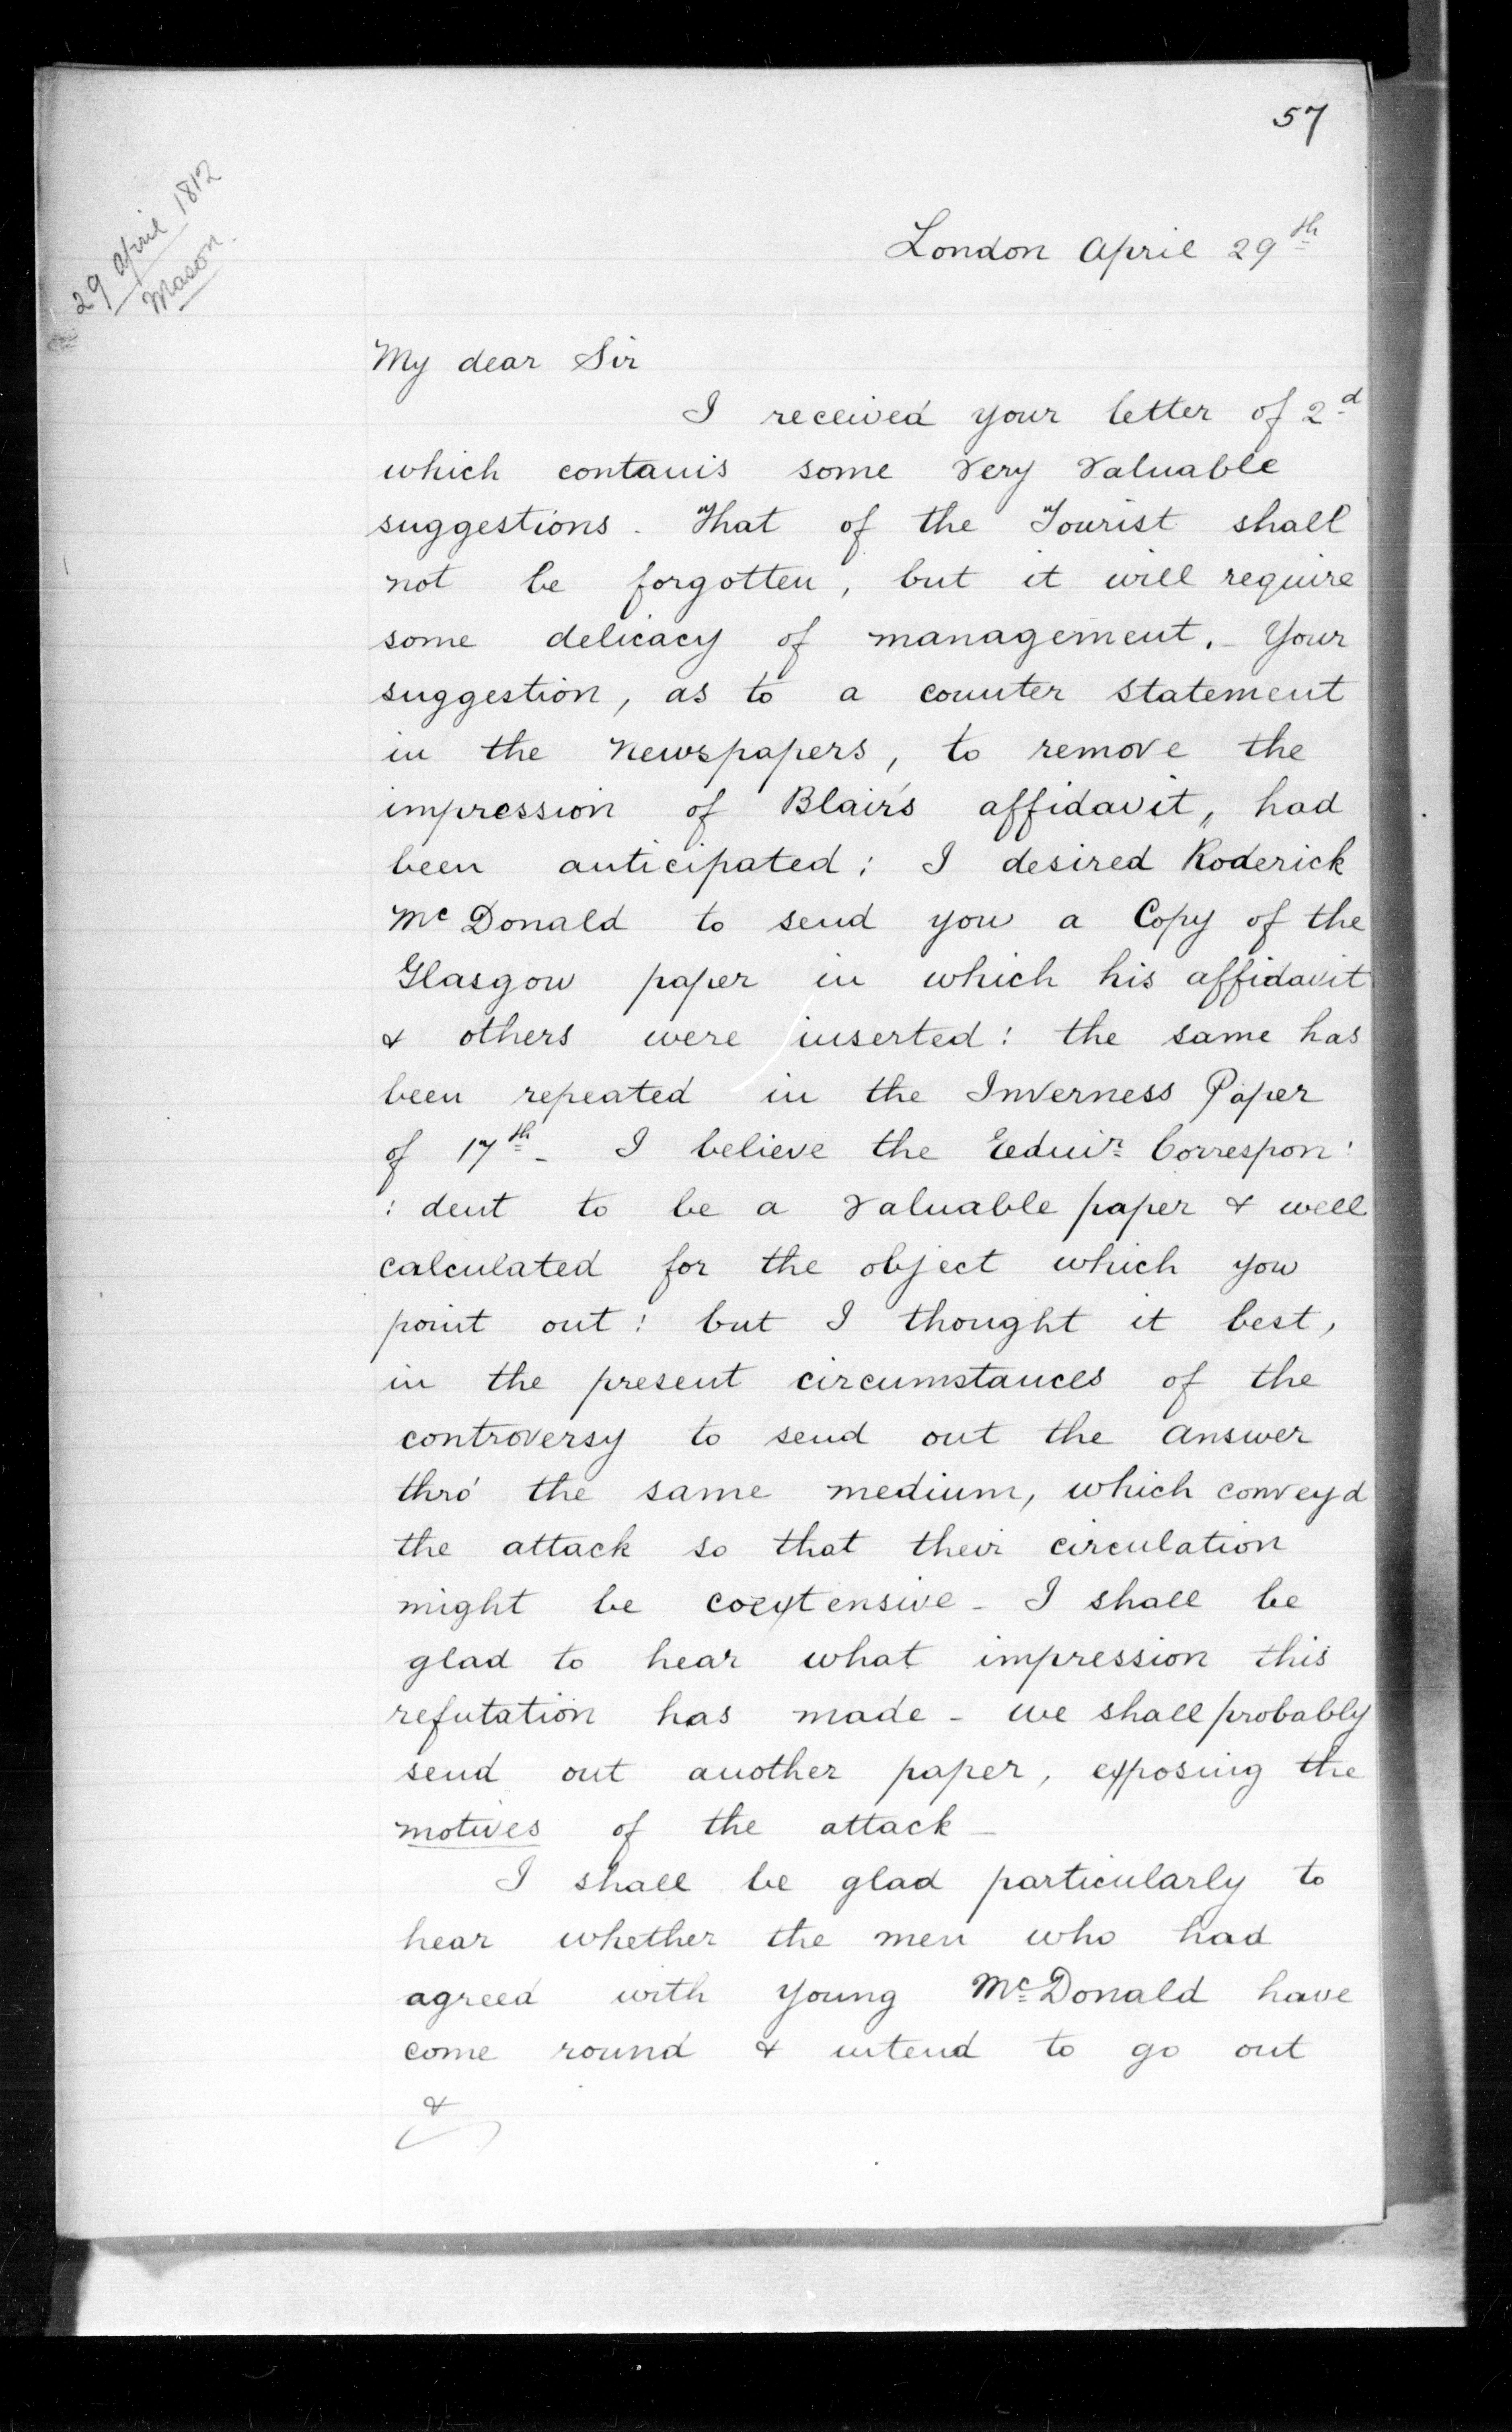 57
29 April 1812
Mason.
London April 29th
My dear Sir
I received your letter of 2d
which contains some very valuable
suggestions. That of the Tourist shall
not be forgotten, but it will require
some delicacy of management. - Your
suggestion, as to a counter statement
in the Newspapers, to remove the
impression of Blair's affidavit, had
been anticipated; I desired Roderick
McDonald to send you a Copy of the
Glasgow paper in which his affidavit
& others were inserted: the same has
been repeated in the Inverness Paper
of 17th - I believe the Correspon:
: dent to be a valuable paper & well
calculated for the object which you
point out: but I thought it best,
in the present circumstances of the
controversy to send out the answer
thro' the same medium, which convey'd
the attack so that their circulation
might be coextensive - I shall be
glad to hear what impression this
refutation has made - we shall probably
send out another paper, exposing the
motives of the attack -
I shall be glad particularly to
hear whether the men who had
agreed with young McDonald have
come round & intend to go out
&